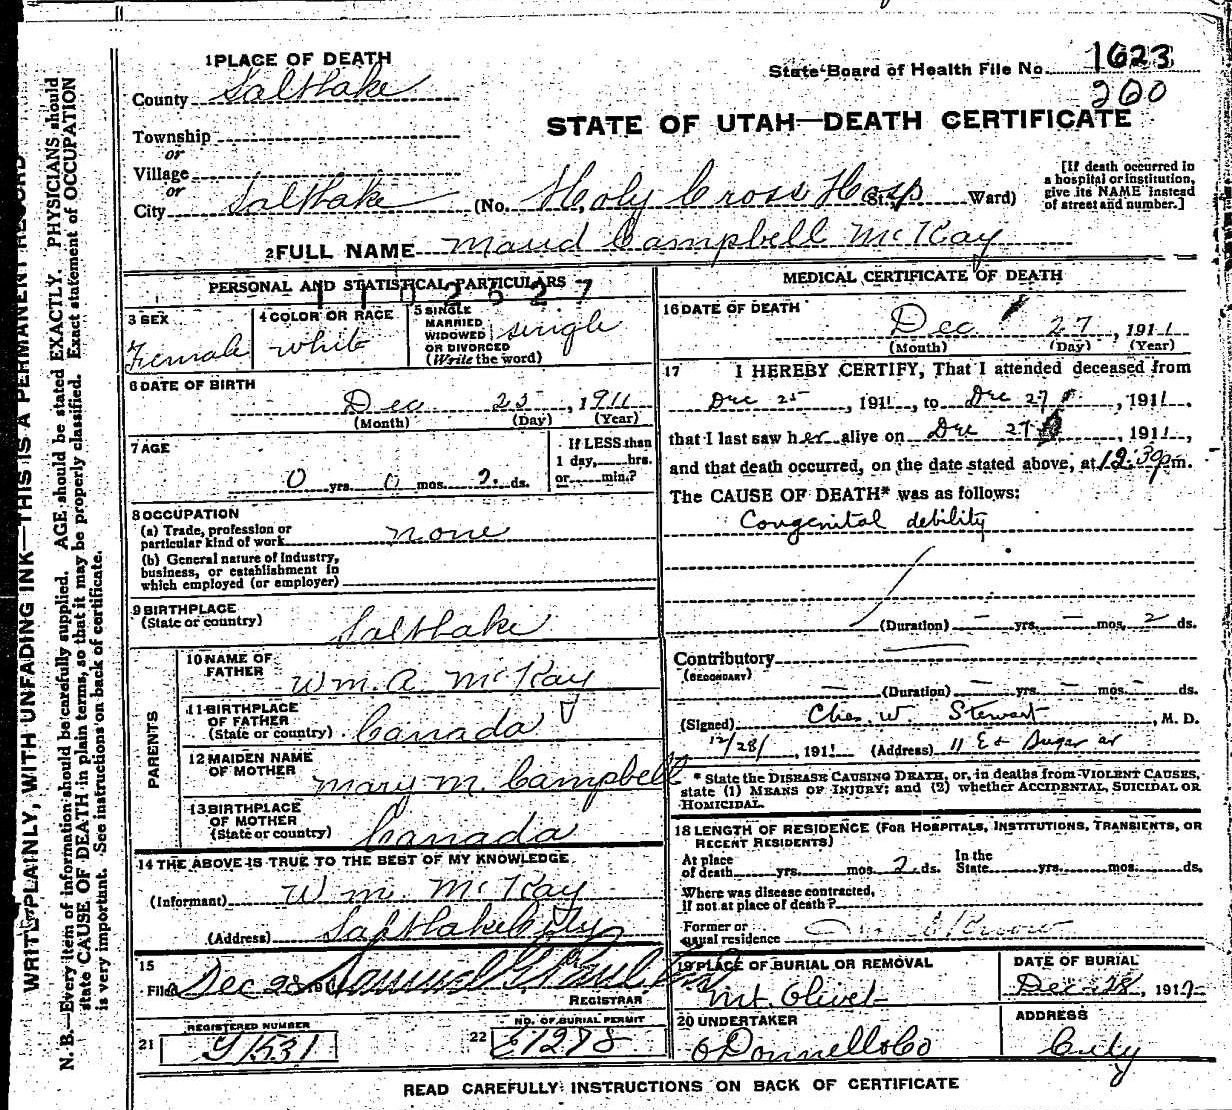 1 PLACE OF DEATH
State Board of Health File No. 1623
260
County Salt Lake
STATE OF UTAH—DEATH CERTIFICATE
Township
or
Village
or
City Salt Lake (No. Holy Cross Hosp St. Ward)
[If death occurred in
a hospital or institution,
give its NAME instead
of street and number.]
2 FULL NAME Maud Campbell McKay
PERSONAL AND STATISTICAL PARTICULARS
1102527
3 SEX
Female
4 COLOR OR RACE
white
5 SINGLE
MARRIED
WIDOWED
OR DIVORCED
(Write the word)
single
6 DATE OF BIRTH
Dec 25, 1911
(Month) (Day) (Year)
7 AGE
0 yrs. 0 mos. 2 ds.
If LESS than
1 day, hrs.
or min.?
8 OCCUPATION
(a) Trade, profession or
particular kind of work none
(b) General nature of industry,
business, or establishment in
which employed (or employer)
9 BIRTHPLACE
(State or country)
Salt Lake
PARENTS
10 NAME OF
FATHER
Wm. A. McKay
11 BIRTHPLACE
OF FATHER
(State or country) Canada
12 MAIDEN NAME
OF MOTHER
Mary M. Campbell
13 BIRTHPLACE
OF MOTHER
(State or country) Canada
14 THE ABOVE IS TRUE TO THE BEST OF MY KNOWLEDGE
(Informant) Wm. McKay
(Address) Salt Lake City
15
Filed Dec 28 191 Samuel G. Paul
REGISTRAR
21
REGISTERED NUMBER
22
NO. OF BURIAL PERMIT
E1278
MEDICAL CERTIFICATE OF DEATH
16 DATE OF DEATH
Dec 27, 1911
(Month) (Day) (Year)
17 I HEREBY CERTIFY, That I attended deceased from
Dec 25, 1911, to Dec 27, 1911,
that I last saw her alive on Dec 27, 1911,
and that death occurred, on the date stated above, at 12:30 p m.
The CAUSE OF DEATH* was as follows:
Congenital debility
(Duration) — yrs. — mos. 2 ds.
Contributory
(SECONDARY)
(Duration) — yrs. — mos. — ds.
(Signed) Chas. W. Stewart, M. D.
12/28/, 1911 (Address)
* State the DISEASE CAUSING DEATH, or, in deaths from VIOLENT CAUSES,
state (1) MEANS OF INJURY; and (2) whether ACCIDENTAL, SUICIDAL OR
HOMICIDAL.
18 LENGTH OF RESIDENCE (FOR HOSPITALS, INSTITUTIONS, TRANSIENTS, OR
RECENT RESIDENTS)
At place
of death yrs. mos. 2 ds.
In the
State yrs. mos. ds.
Where was disease contracted,
if not at place of death?
Former or
usual residence
19 PLACE OF BURIAL OR REMOVAL
Mt Olivet
DATE OF BURIAL
Dec 28, 191
20 UNDERTAKER
O'Donnell & Co
ADDRESS
City
READ CAREFULLY INSTRUCTIONS ON BACK OF CERTIFICATE
WRITE PLAINLY, WITH UNFADING INK—THIS IS A PERMANENT RECORD
N. B.—Every item of information should be carefully supplied. AGE should be stated EXACTLY. PHYSICIANS should
state CAUSE OF DEATH in plain terms, so that it may be properly classified. Exact statement of OCCUPATION
is very important. See instructions on back of certificate.